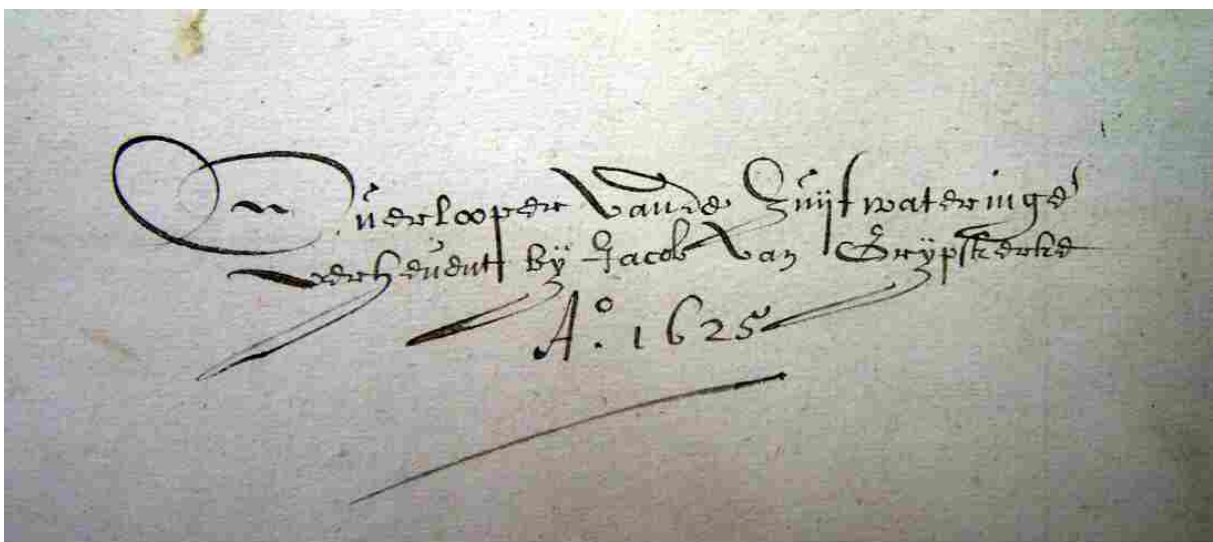 Overlooper vande Zuijtwateringe
verheuent bÿ Jacob van Grÿpskerke
A.º 1625